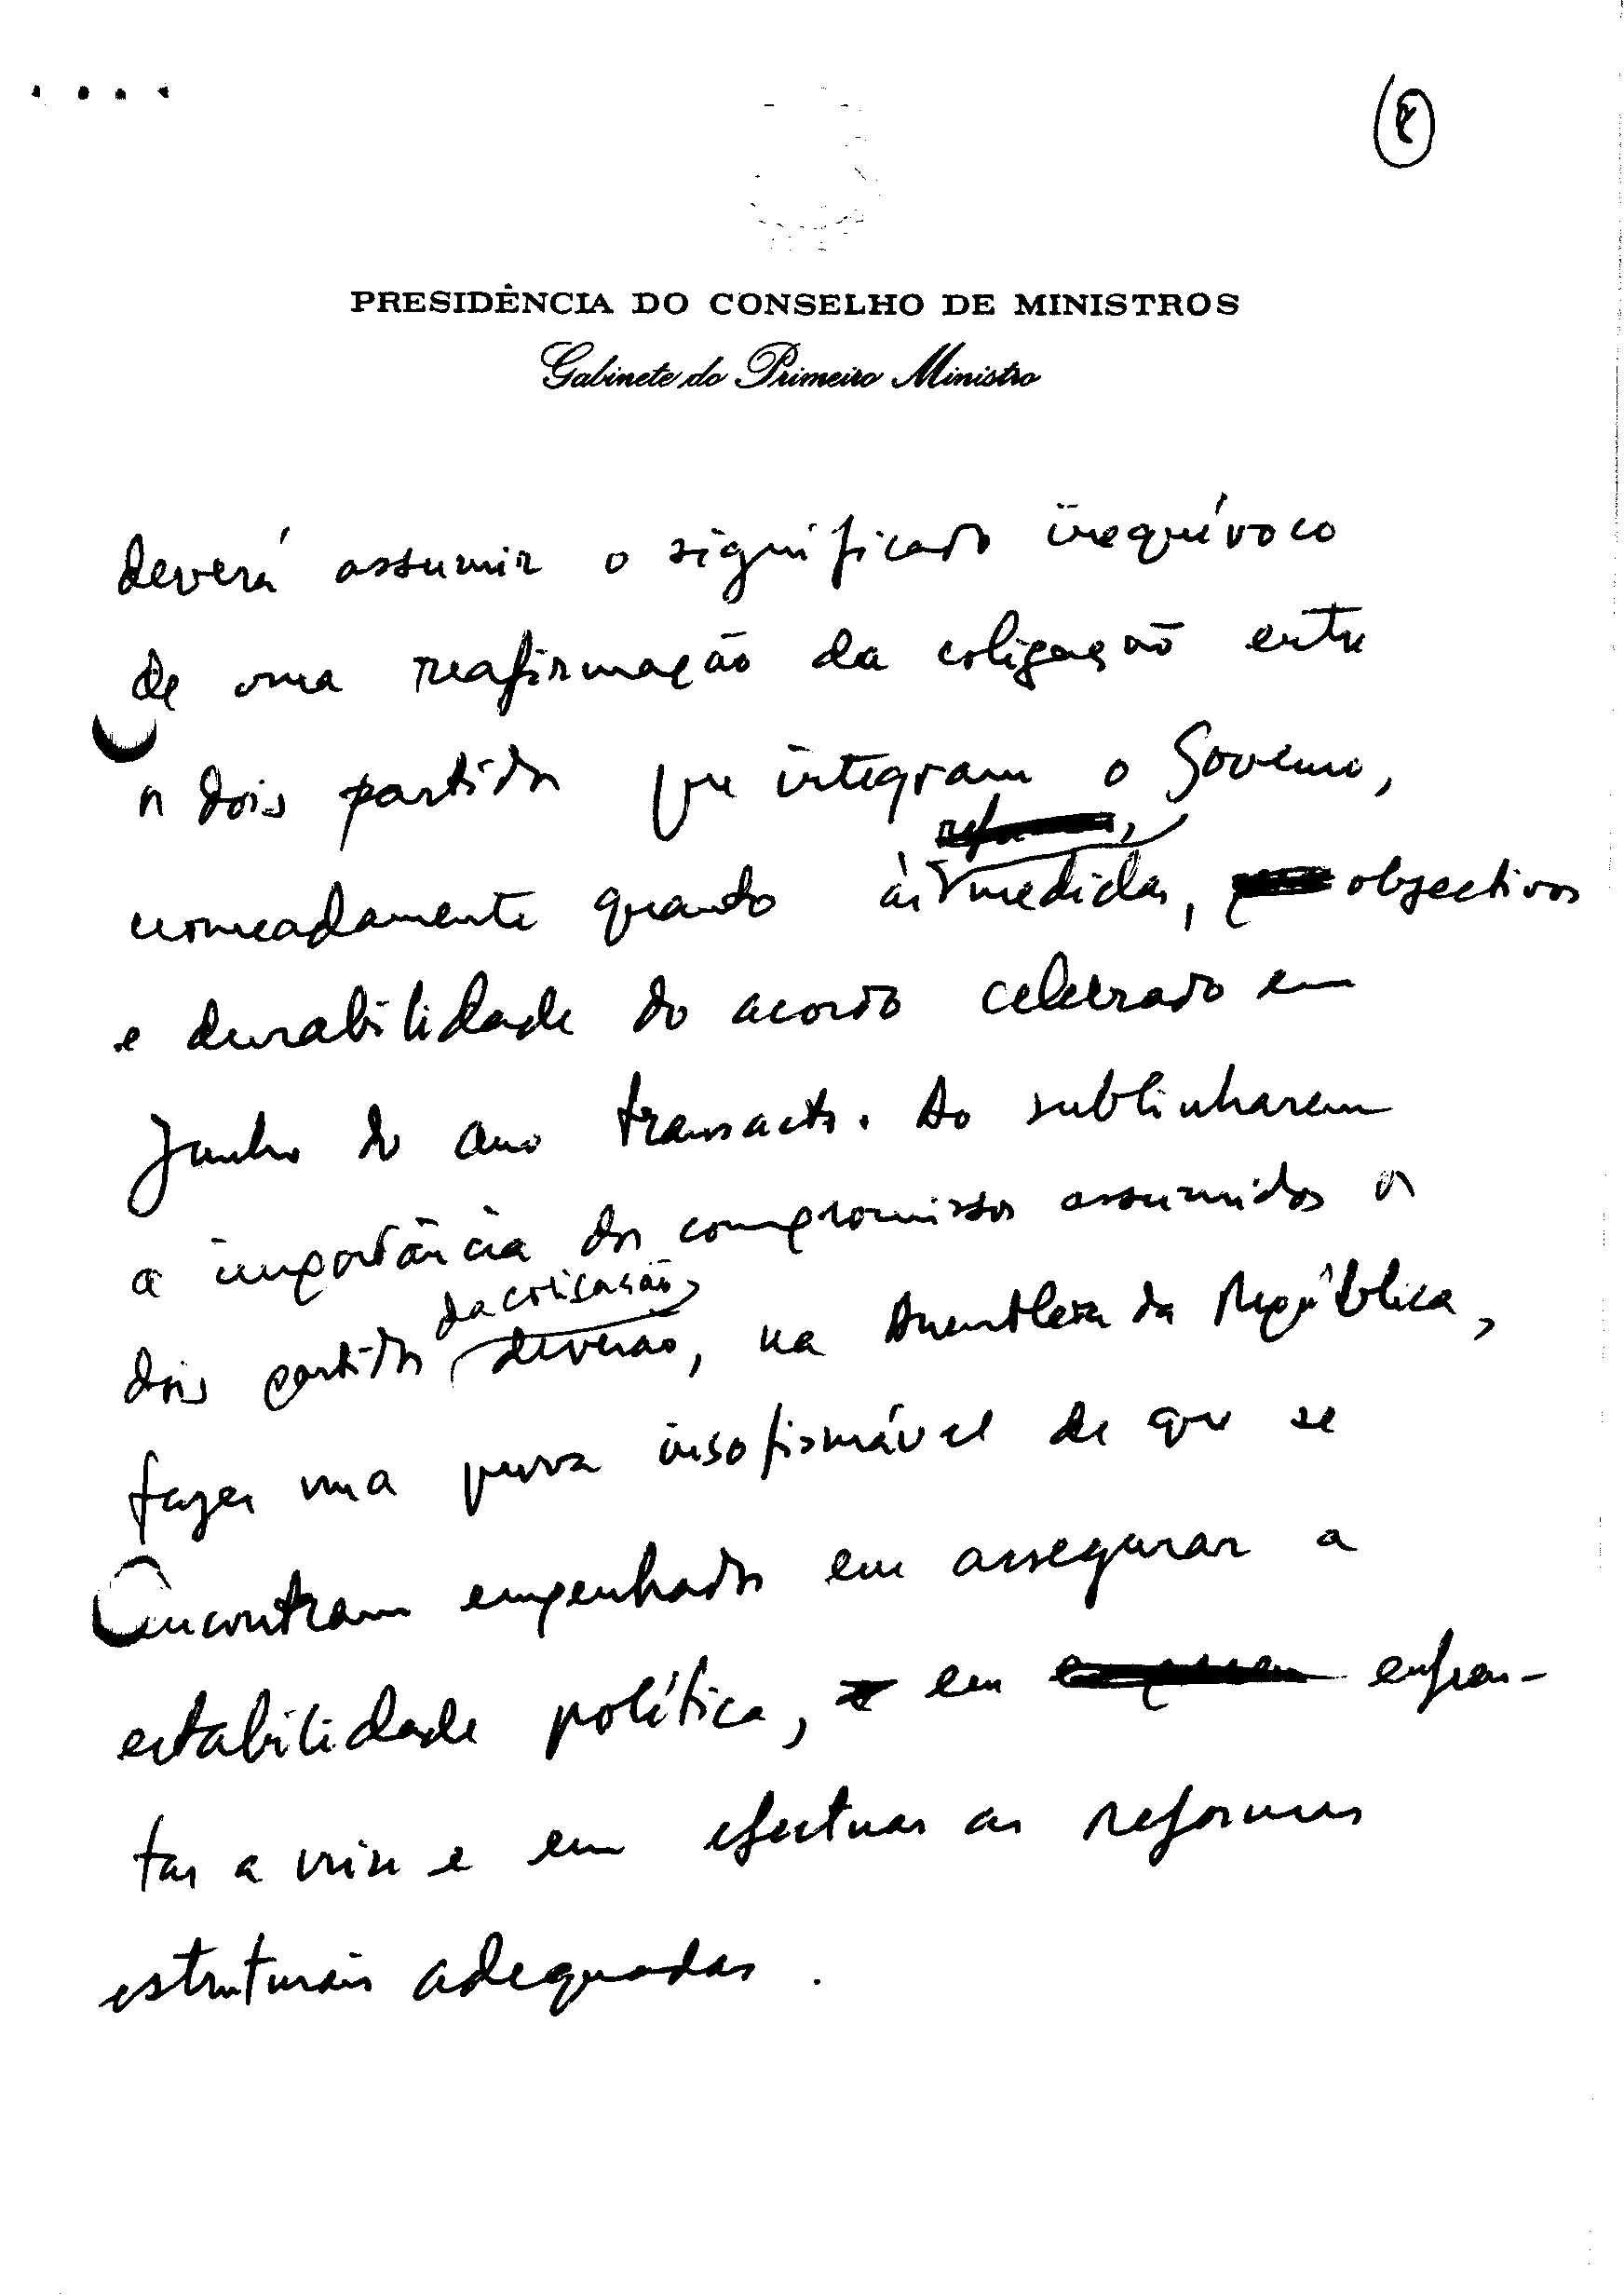 PRESIDÊNCIA DO CONSELHO DE MINISTROS
Gabinete do Primeiro Ministro
deverá assumir o significado inequívoco
de uma reafirmação da coligação entre
os dois partidos que integram o Governo,
nomeadamente quanto às medidas, objectivos
e durabilidade do acordo celebrado em
Junho do ano transacto. Ao sublinharem
a importância dos compromissos assumidos os
da coligação
dois partidos deverão, na Assembleia da República,
fazer uma prova insofismável de que se
encontram empenhados em assegurar a
estabilidade política, em enfren-
tar a crise e em efectuar as reformas
estruturais adequadas.